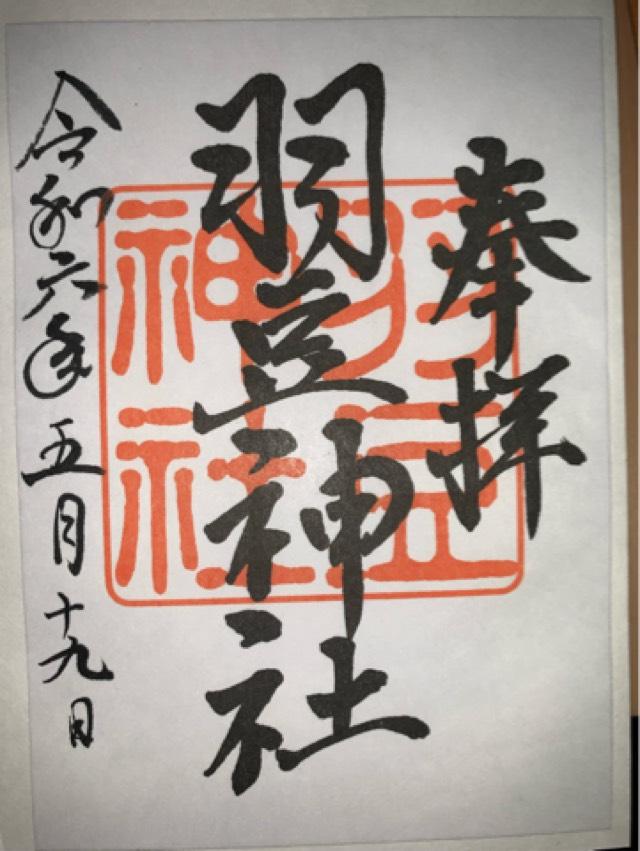 奉拝
羽豆神社
令和六年五月十九日
羽豆神社